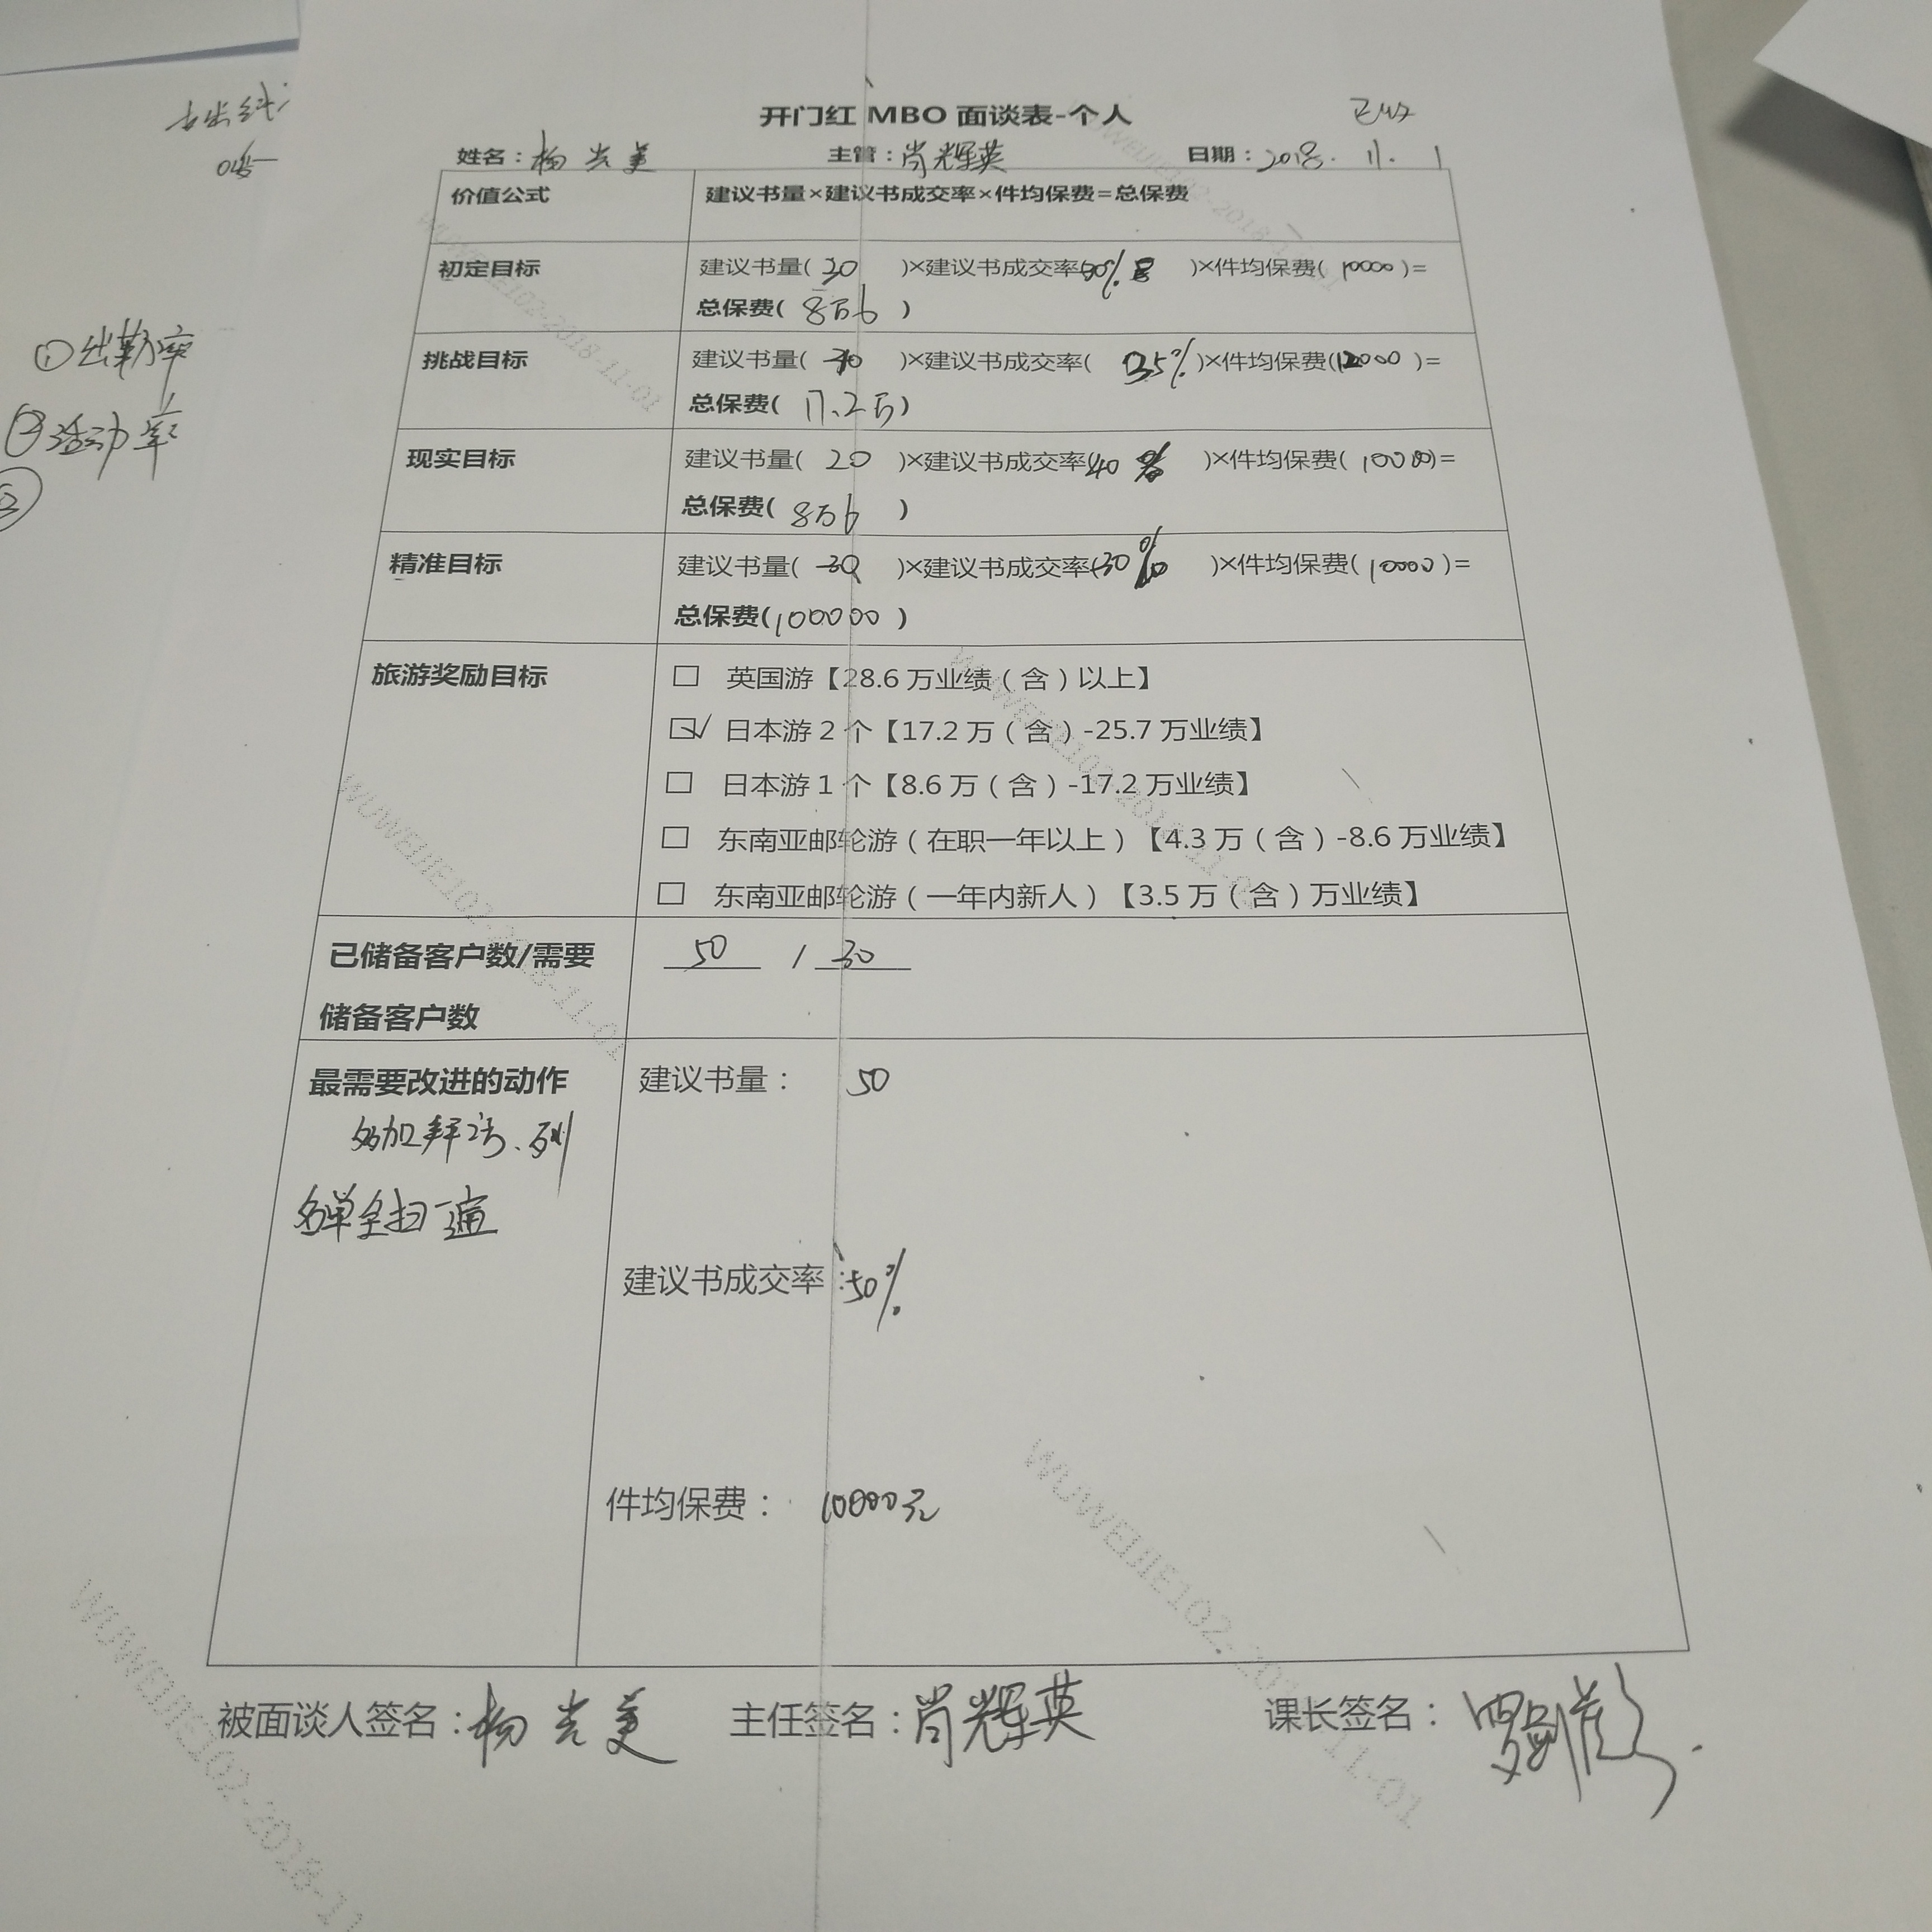 开门红 MBO 面谈表-个人
姓名：杨光美 主管：肖辉英 日期：2018.11.1
价值公式 建议书量×建议书成交率×件均保费=总保费
初定目标 建议书量( 30 )×建议书成交率(30% )×件均保费( 10000 )=
总保费( 8万6 )
挑战目标 建议书量( 40 )×建议书成交率( 35% )×件均保费(12000 )=
总保费( 17.2万)
现实目标 建议书量( 20 )×建议书成交率(40 )×件均保费( 10000)=
总保费( 8万6 )
精准目标 建议书量( 30 )×建议书成交率(30% )×件均保费( 10000 )=
总保费(100000 )
旅游奖励目标 □ 英国游【28.6 万业绩（含）以上】
☑ 日本游 2 个【17.2 万（含）-25.7 万业绩】
□ 日本游 1 个【8.6 万（含）-17.2 万业绩】
□ 东南亚邮轮游（在职一年以上）【4.3 万（含）-8.6 万业绩】
□ 东南亚邮轮游（一年内新人）【3.5 万（含）万业绩】
已储备客户数/需要 50 / 30
储备客户数
最需要改进的动作 建议书量： 50
多加拜访、列
名单全扫一遍
建议书成交率：50%
件均保费： 10000元
被面谈人签名：杨光美 主任签名：肖辉英 课长签名：
①出勤率
②活动率
③
WUWEIJIE102-2018-11-01